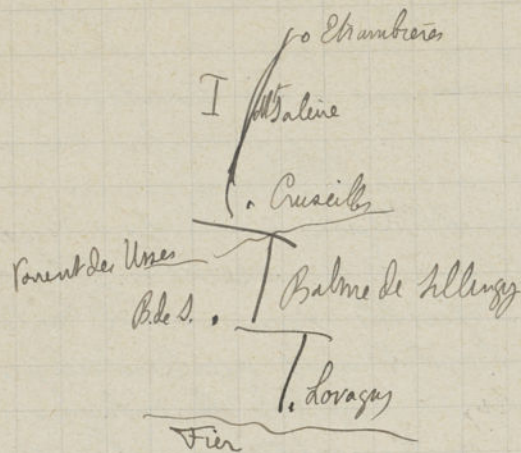 Etrambières
I Mt Salève
Cruseilles
Torrent des Usses
Balme de Sillingy
B. de S.
Lovagny
Fier